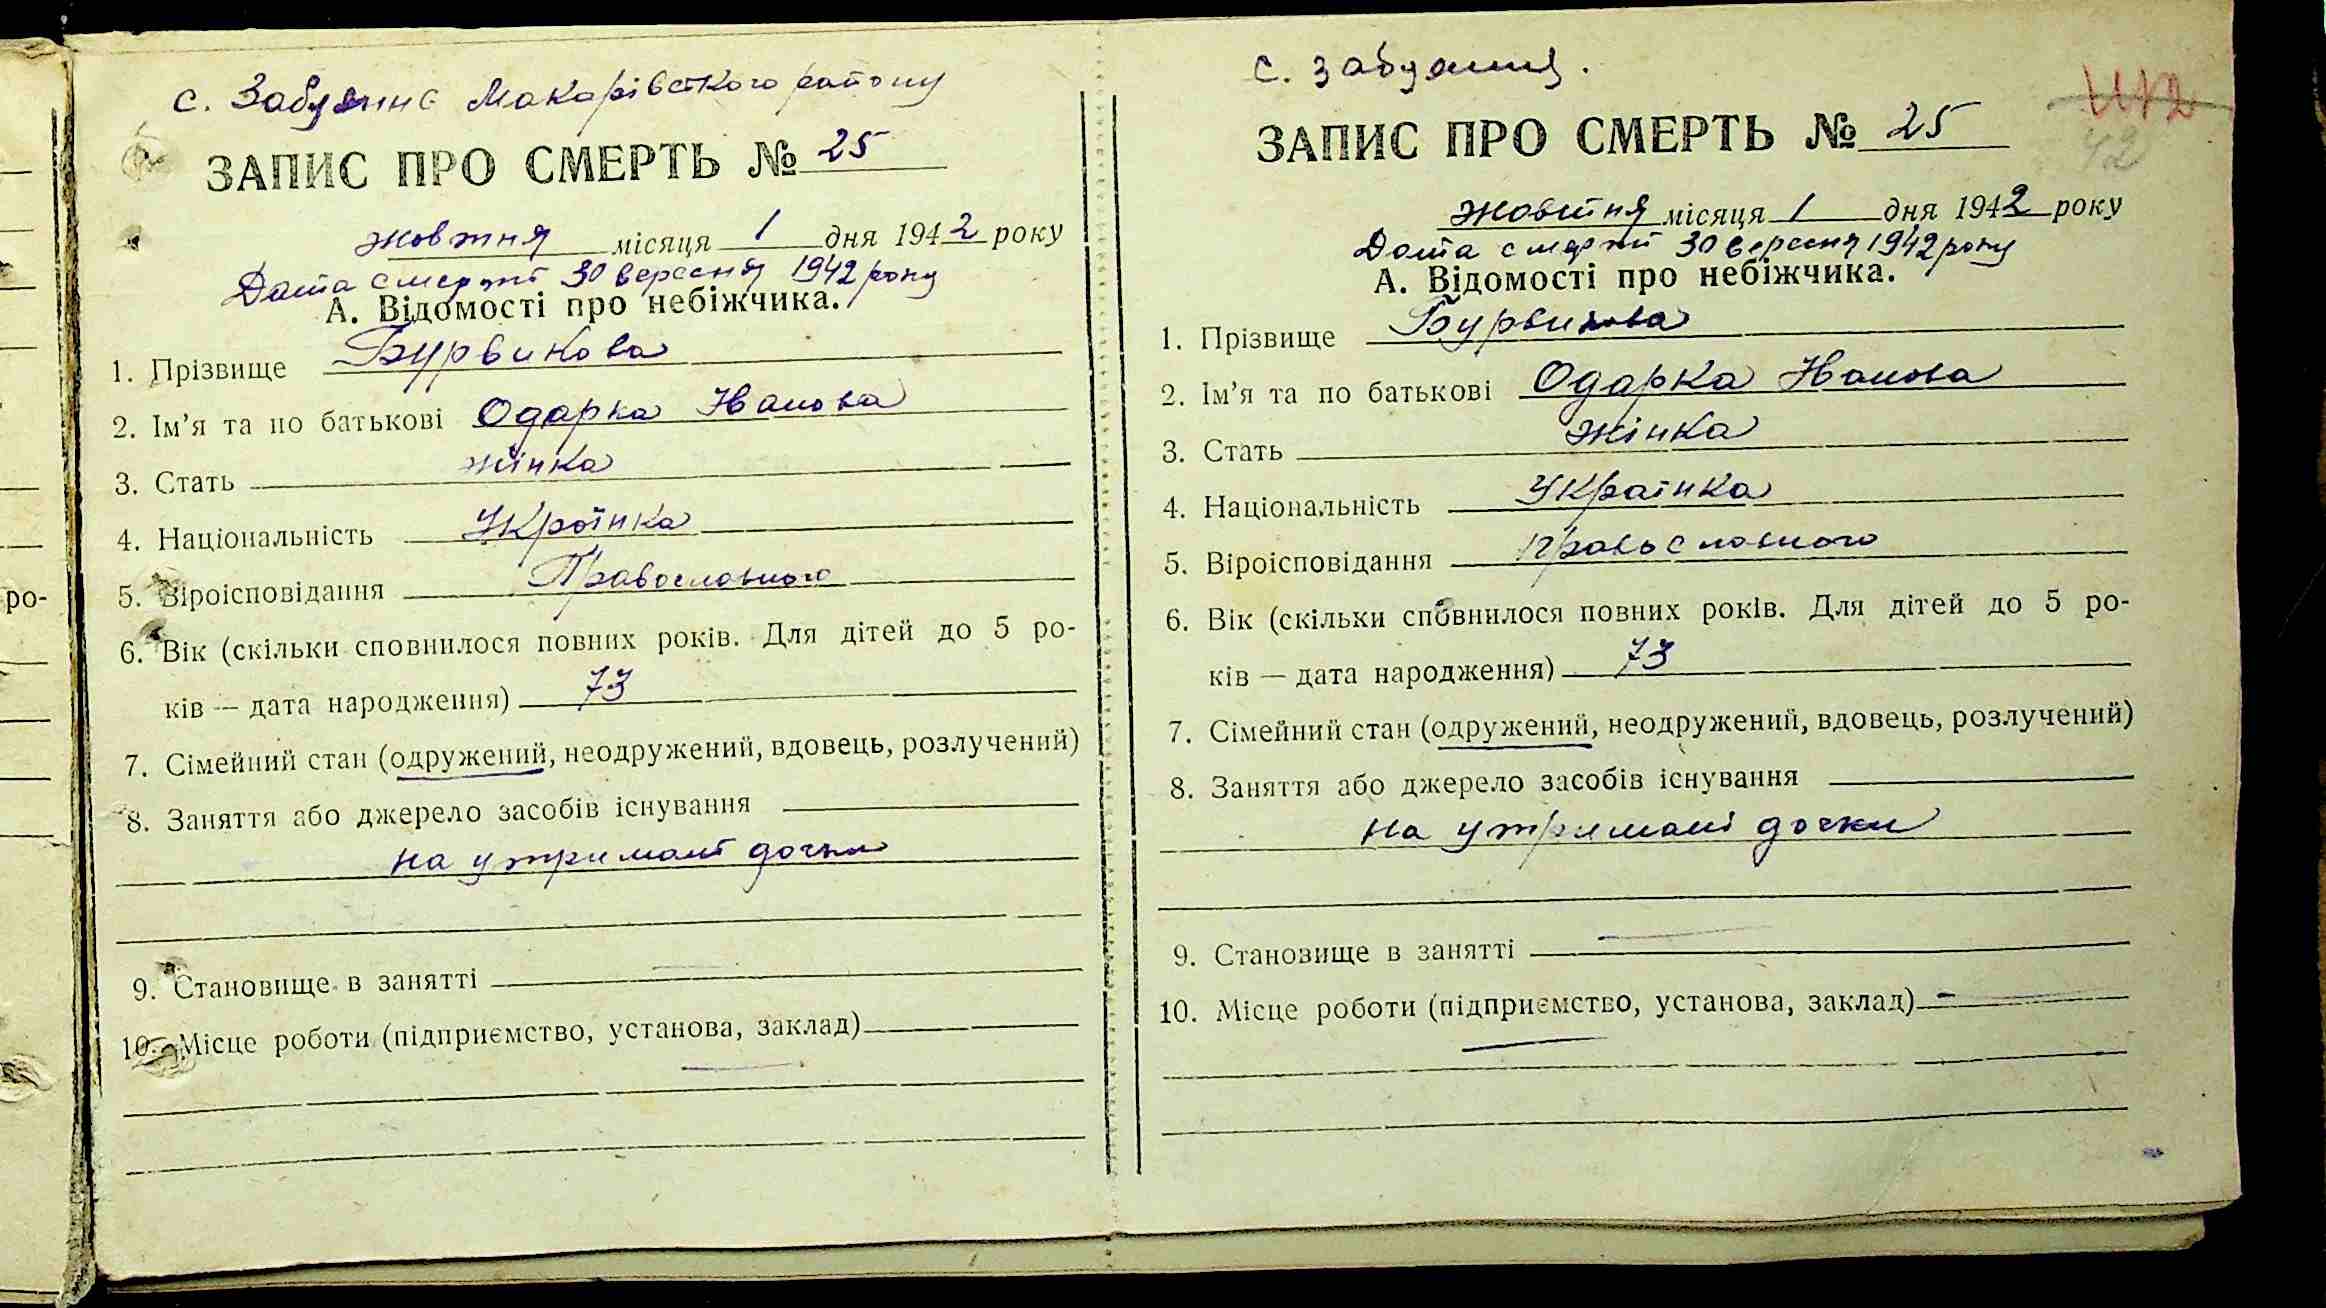 ро-
с. Забуянне Макарівського району
ЗАПИС ПРО СМЕРТЬ № 25
жовтня місяця 1 дня 1942 року
Дата смерті 30 вересня 1942 року
А. Відомості про небіжчика.
1. Прізвище Бурвикова
2. Ім'я та по батькові Одарка Іванова
3. Стать жінка
4. Національність Українка
5. Віроісповідання Православного
6. Вік (скільки сповнилося повних років. Для дітей до 5 ро-
ків — дата народження) 73
7. Сімейний стан (одружений, неодружений, вдовець, розлучений)
8. Заняття або джерело засобів існування
на утримані дочки
9. Становище в занятті —
10. Місце роботи (підприємство, установа, заклад)
—
с. Забуяння.
42
ЗАПИС ПРО СМЕРТЬ № 25
жовтня місяця 1 дня 1942 року
Дата смерти 30 вересня 1942 року
А. Відомості про небіжчика.
1. Прізвище Бурвикова
2. Ім'я та по батькові Одарка Іванова
3. Стать жінка
4. Національність Українка
5. Віроісповідання Православного
6. Вік (скільки сповнилося повних років. Для дітей до 5 ро-
ків — дата народження) 73
7. Сімейний стан (одружений, неодружений, вдовець, розлучений)
8. Заняття або джерело засобів існування
на утримані дочки
9. Становище в занятті —
10. Місце роботи (підприємство, установа, заклад) —
—